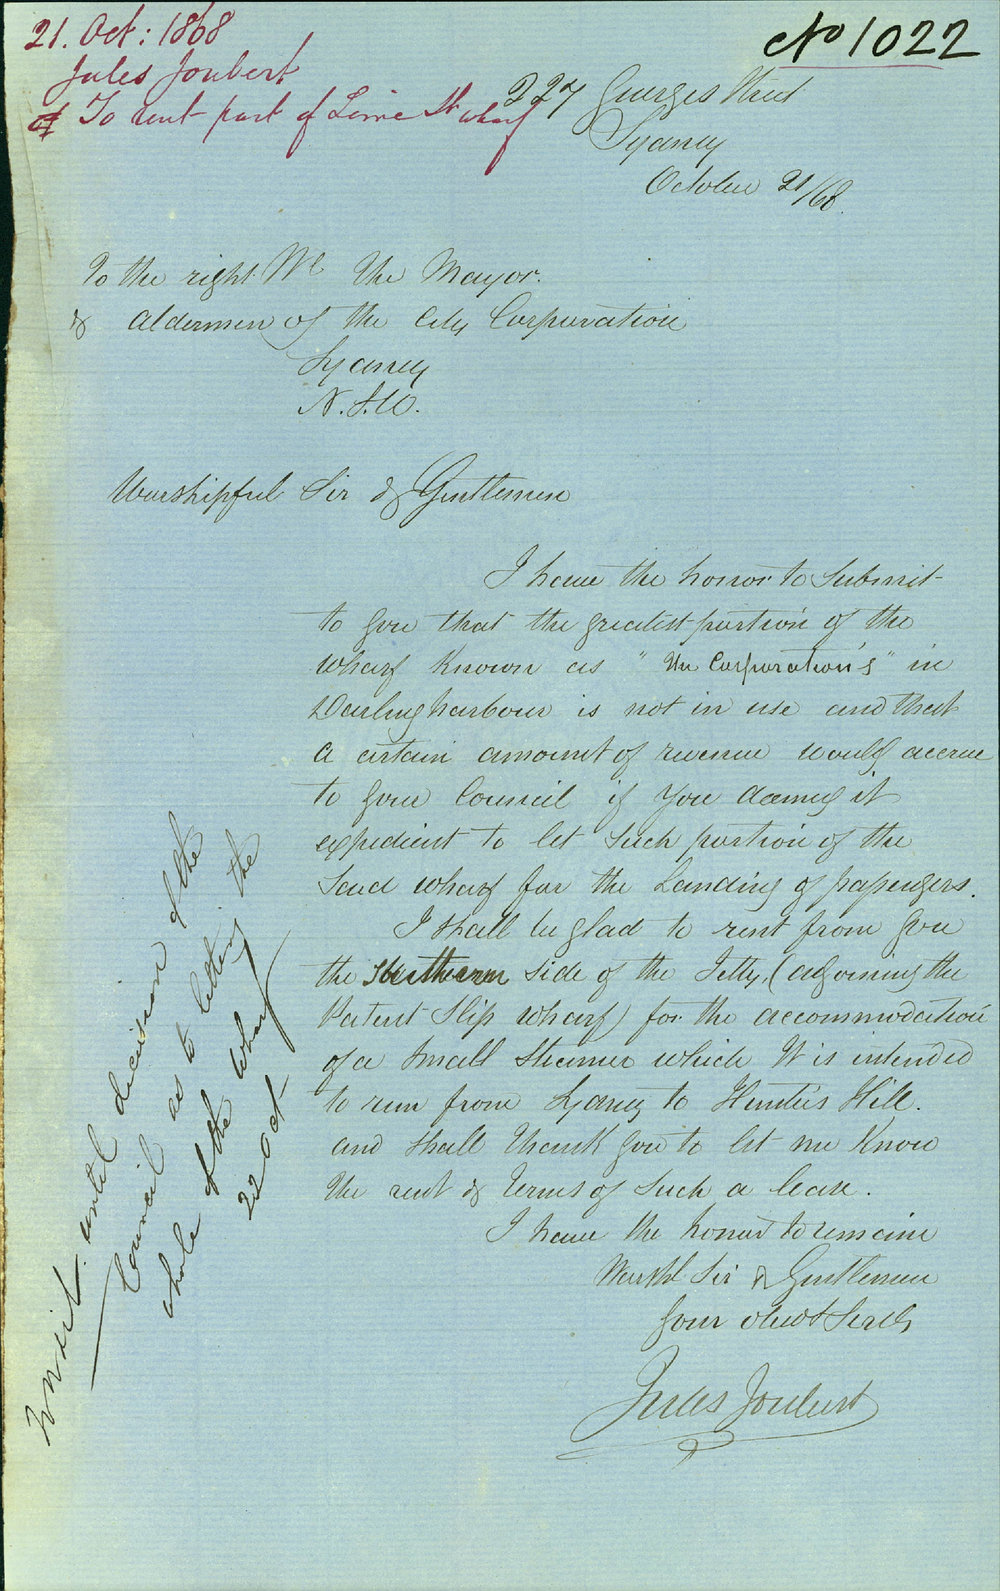 21. Oct: 1868
Jules Joubert
To rent part of Lime St wharf
No 1022
227 Georges Street
Sydney
October 21/68.
To the right Wl the Mayor.
& Aldermen of the City Corporation
Sydney
N.S.W.
Worshipful Sir & Gentlemen
I have the honor to submit
to you that the greatest portion of the
wharf known as "the Corporation's" in
Darling harbour is not in use and that
a certain amount of revenue would accrue
to your Council if you deemed it
expedient to let such portion of the
said wharf for the Landing of passengers.
I shall be glad to rent from you
the side of the Jetty, (adjoining the
Patent Slip wharf) for the accommodation
of a small steamer which it is intended
to run from Sydney to Hunter's Hill.
and shall thank you to let me know
the rent & terms of such a lease.
I have the honor to remain
Worshl Sir & Gentlemen
Your obedt Servt
Jules Joubert
Wait until decision of the
Council as to letting the
whole of the wharf
22 Oct